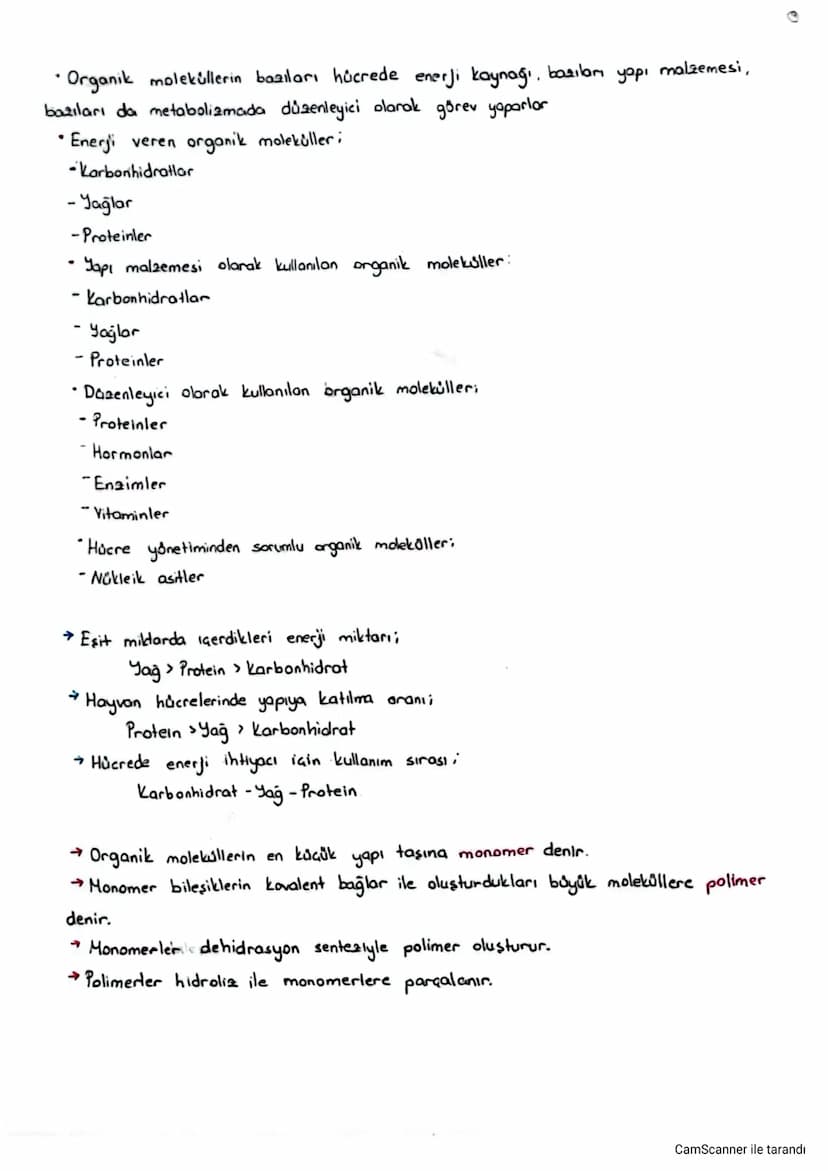 • Organik moleküllerin bazıları hücrede enerji kaynağı, bazıları yapı malzemesi,
bazıları da metabolizmada düzenleyici olarak görev yaparlar
• Enerji veren organik moleküller;
- Karbonhidratlar
- Yağlar
- Proteinler
• Yapı malzemesi olarak kullanılan organik moleküller:
- Karbonhidratlar
- Yağlar
- Proteinler
• Düzenleyici olarak kullanılan organik moleküller;
- Proteinler
- Hormonlar
- Enzimler
- Vitaminler
• Hücre yönetiminden sorumlu organik moleküller;
- Nükleik asitler
→ Eşit miktarda içerdikleri enerji miktarı;
Yağ > Protein > Karbonhidrat
→ Hayvan hücrelerinde yapıya katılma oranı;
Protein > Yağ > Karbonhidrat
→ Hücrede enerji ihtiyacı için kullanım sırası;
Karbonhidrat - Yağ - Protein
→ Organik moleküllerin en küçük yapı taşına monomer denir.
→ Monomer bileşiklerin kovalent bağlar ile oluşturdukları büyük moleküllere polimer
denir.
→ Monomerler dehidrasyon senteziyle polimer oluşturur.
→ Polimerler hidroliz ile monomerlere parçalanır.
CamScanner ile tarandı